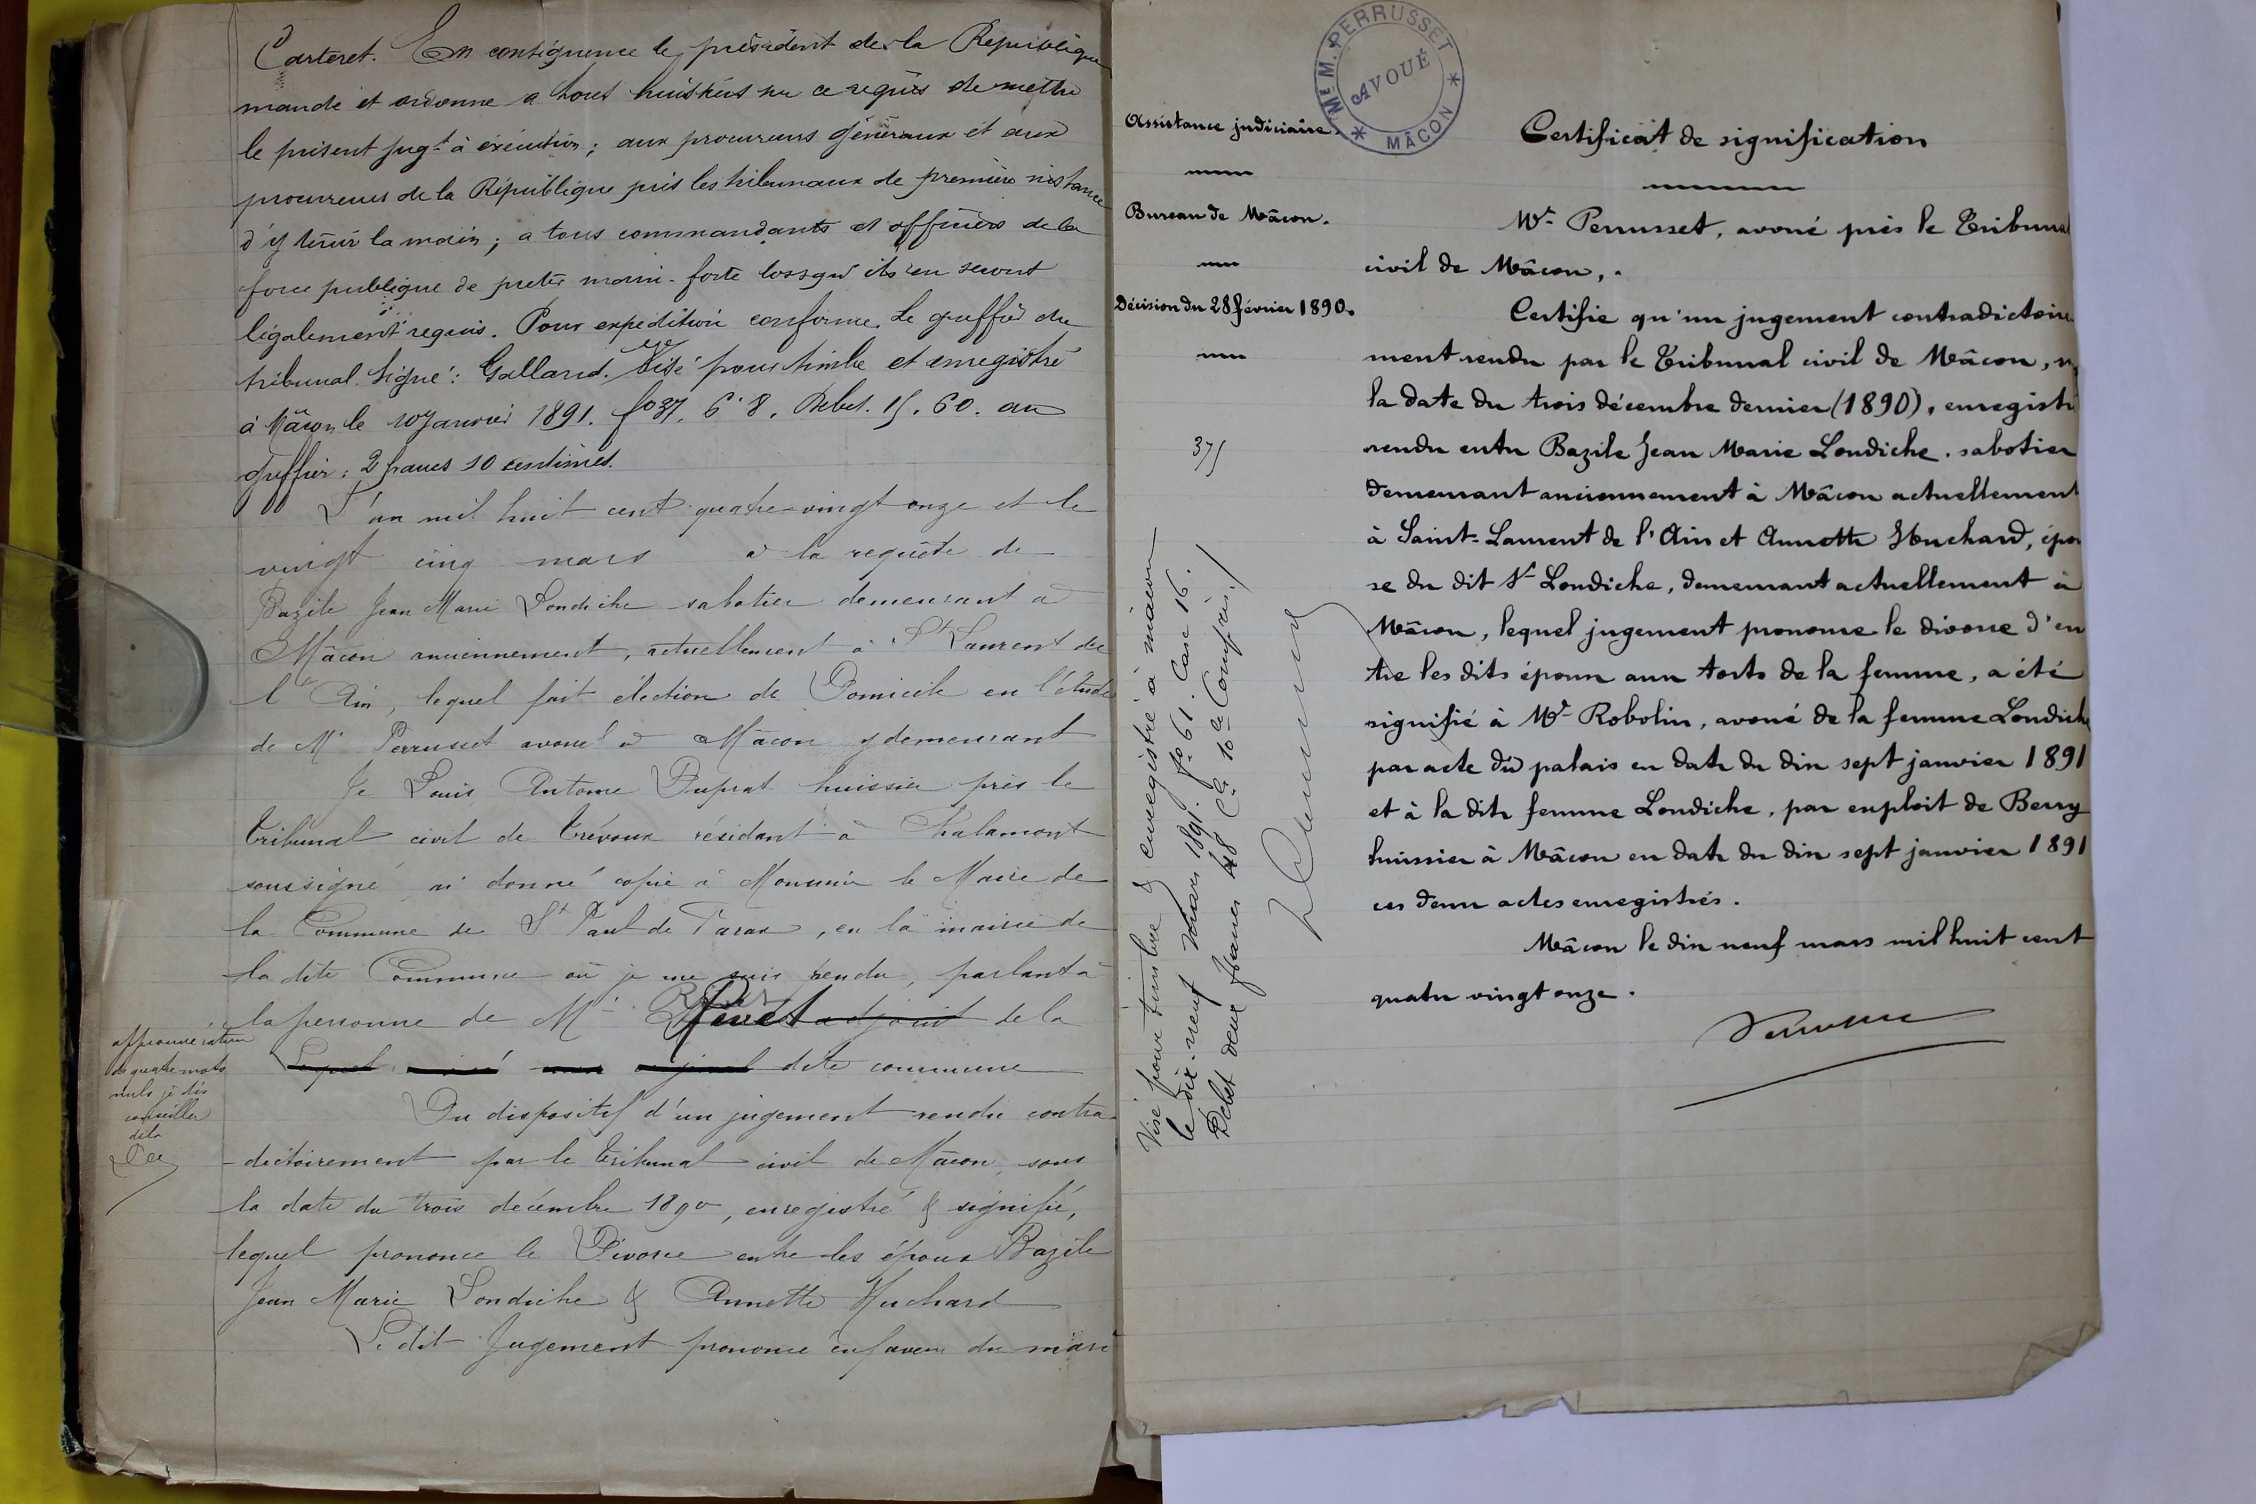 Carteret. En conséquence le président de la République
mande et ordonne a tous huissiers sur ce requis de mettre
le présent jugt à exécution ; aux procureurs généraux et aux
procureurs de la République près les tribunaux de première instance
d'y tenir la main ; a tous commandants et officiers de la
force publique de preter main-forte lorsqu'ils en seront
légalement requis. Pour expédition conforme. Le greffier du
tribunal. Signé : Galland. Visé pour timbre et enregistré
à Mâcon le 10 Janvier 1891. fo 37. C. 8. Debet. 15. 60. au
Greffier : 2 francs 10 centimes.
L'an mil huit cent quatre-vingt onze et le
vingt cinq mars à la requête de
Bazile Jean Marie Londiche sabotier demeurant à
Mâcon anciennement, actuellement à St Laurent de
l'Ain, lequel fait élection de Domicile en l'étude
de Me Perrusset avoué à Mâcon y demeurant
Je Louis Antome Duprat huissier près le
Tribunal civil de Trévoux résidant à Chalamont
soussigné, ai donné copie à Monsieur le Maire de
la Commune de St Paul de Varax, en la mairie de
la dite Commune où je me suis rendu, parlant à
la personne de Mr adjoint de la
dite commune
approuvé
de quatre mots
nuls je dis
conseiller
de la
Du dispositif d'un jugement rendu contra-
-dictoirement par le Tribunal civil de Mâcon, sous
la date du trois décembre 1890, enregistré & signifié,
lequel prononce le Divorce entre les époux Bazile
Jean Marie Londiche & Annette Huchard
Le dit Jugement prononcé en faveur du mari
Me M. PERRUSSET
AVOUÉ
* MÂCON *
Assistance judiciaire.
Bureau de Mâcon.
Décision du 28 février 1890.
375
Visé pour timbre & enregistré à mâcon
le dix-neuf mars 1891. fo 61. Case 16.
Debet deux francs 48 ces 10es Compris
Certificat de signification
Me Perrusset, avoué près le Tribunal
civil de Mâcon, .
Certifie qu'un jugement contradictoire
ment rendu par le Tribunal civil de Mâcon,
la date du trois décembre dernier (1890), enregistré
rendu entre Bazile Jean Marie Londiche, sabotier
demeurant anciennement à Mâcon actuellement
à Saint-Laurent de l'Ain et Annette Huchard, épou
se du dit Sr Londiche, demeurant actuellement à
Mâcon, lequel jugement prononce le divorce d'en
tre les dits époux aux torts de la femme, a été
signifié à Me Robolin, avoué de la femme Londiche
par acte du palais en date du dix sept janvier 1891
et à la dite femme Londiche, par exploit de Berry
huissier à Mâcon en date du dix sept janvier 1891
ces deux actes enregistrés.
Mâcon le dix neuf mars mil huit cent
quatre vingt onze.